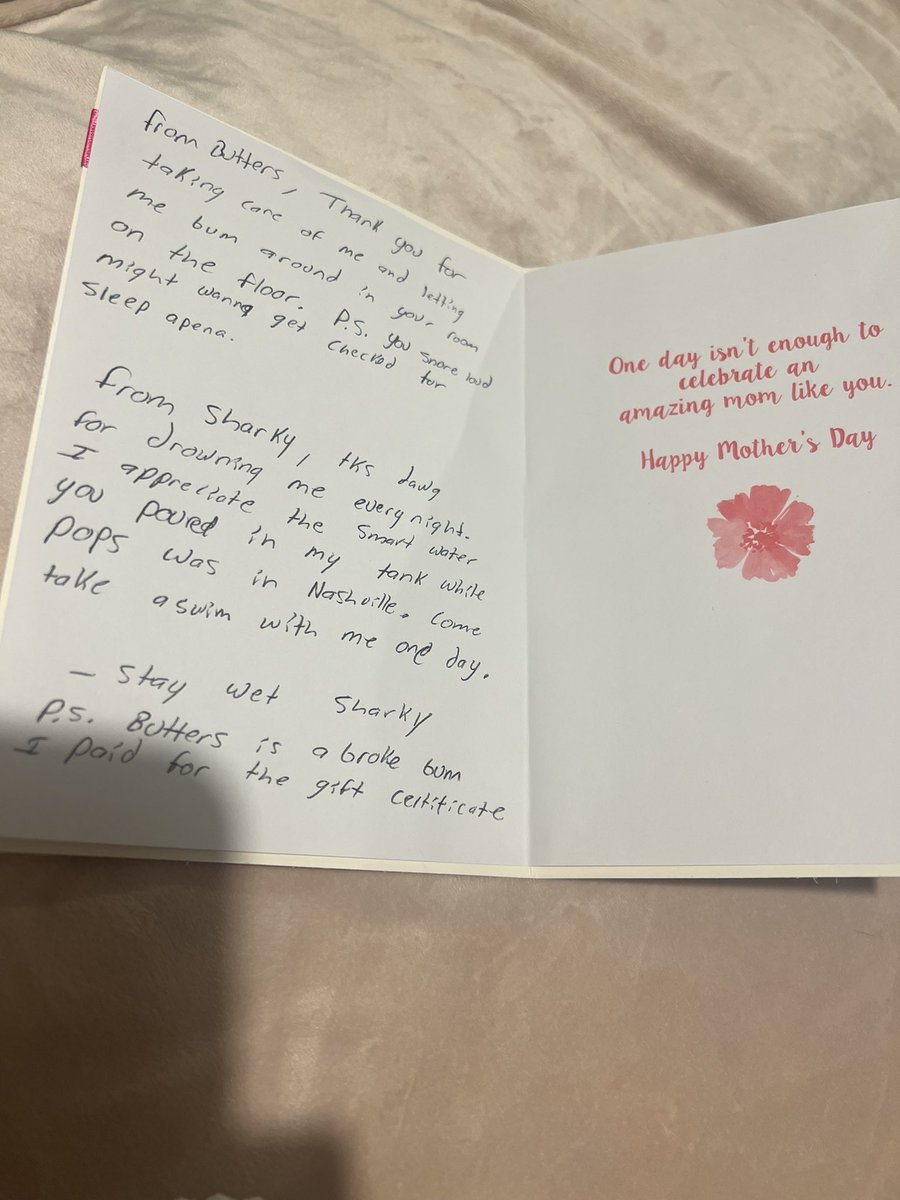 from Butters, Thank you for
taking care of me and letting
me bum around in your room
on the floor. P.S. you snore loud
might wanna get checked for
sleep apena.
from Sharky, tks dawg
for drowning me every night.
I appreciate the Smart water
you poured in my tank while
pops was in Nashville. Come
take a swim with me one day.
- Stay wet Sharky
P.S. Butters is a broke bum
I paid for the gift certificate
One day isn't enough to
celebrate an
amazing mom like you.
Happy Mother's Day